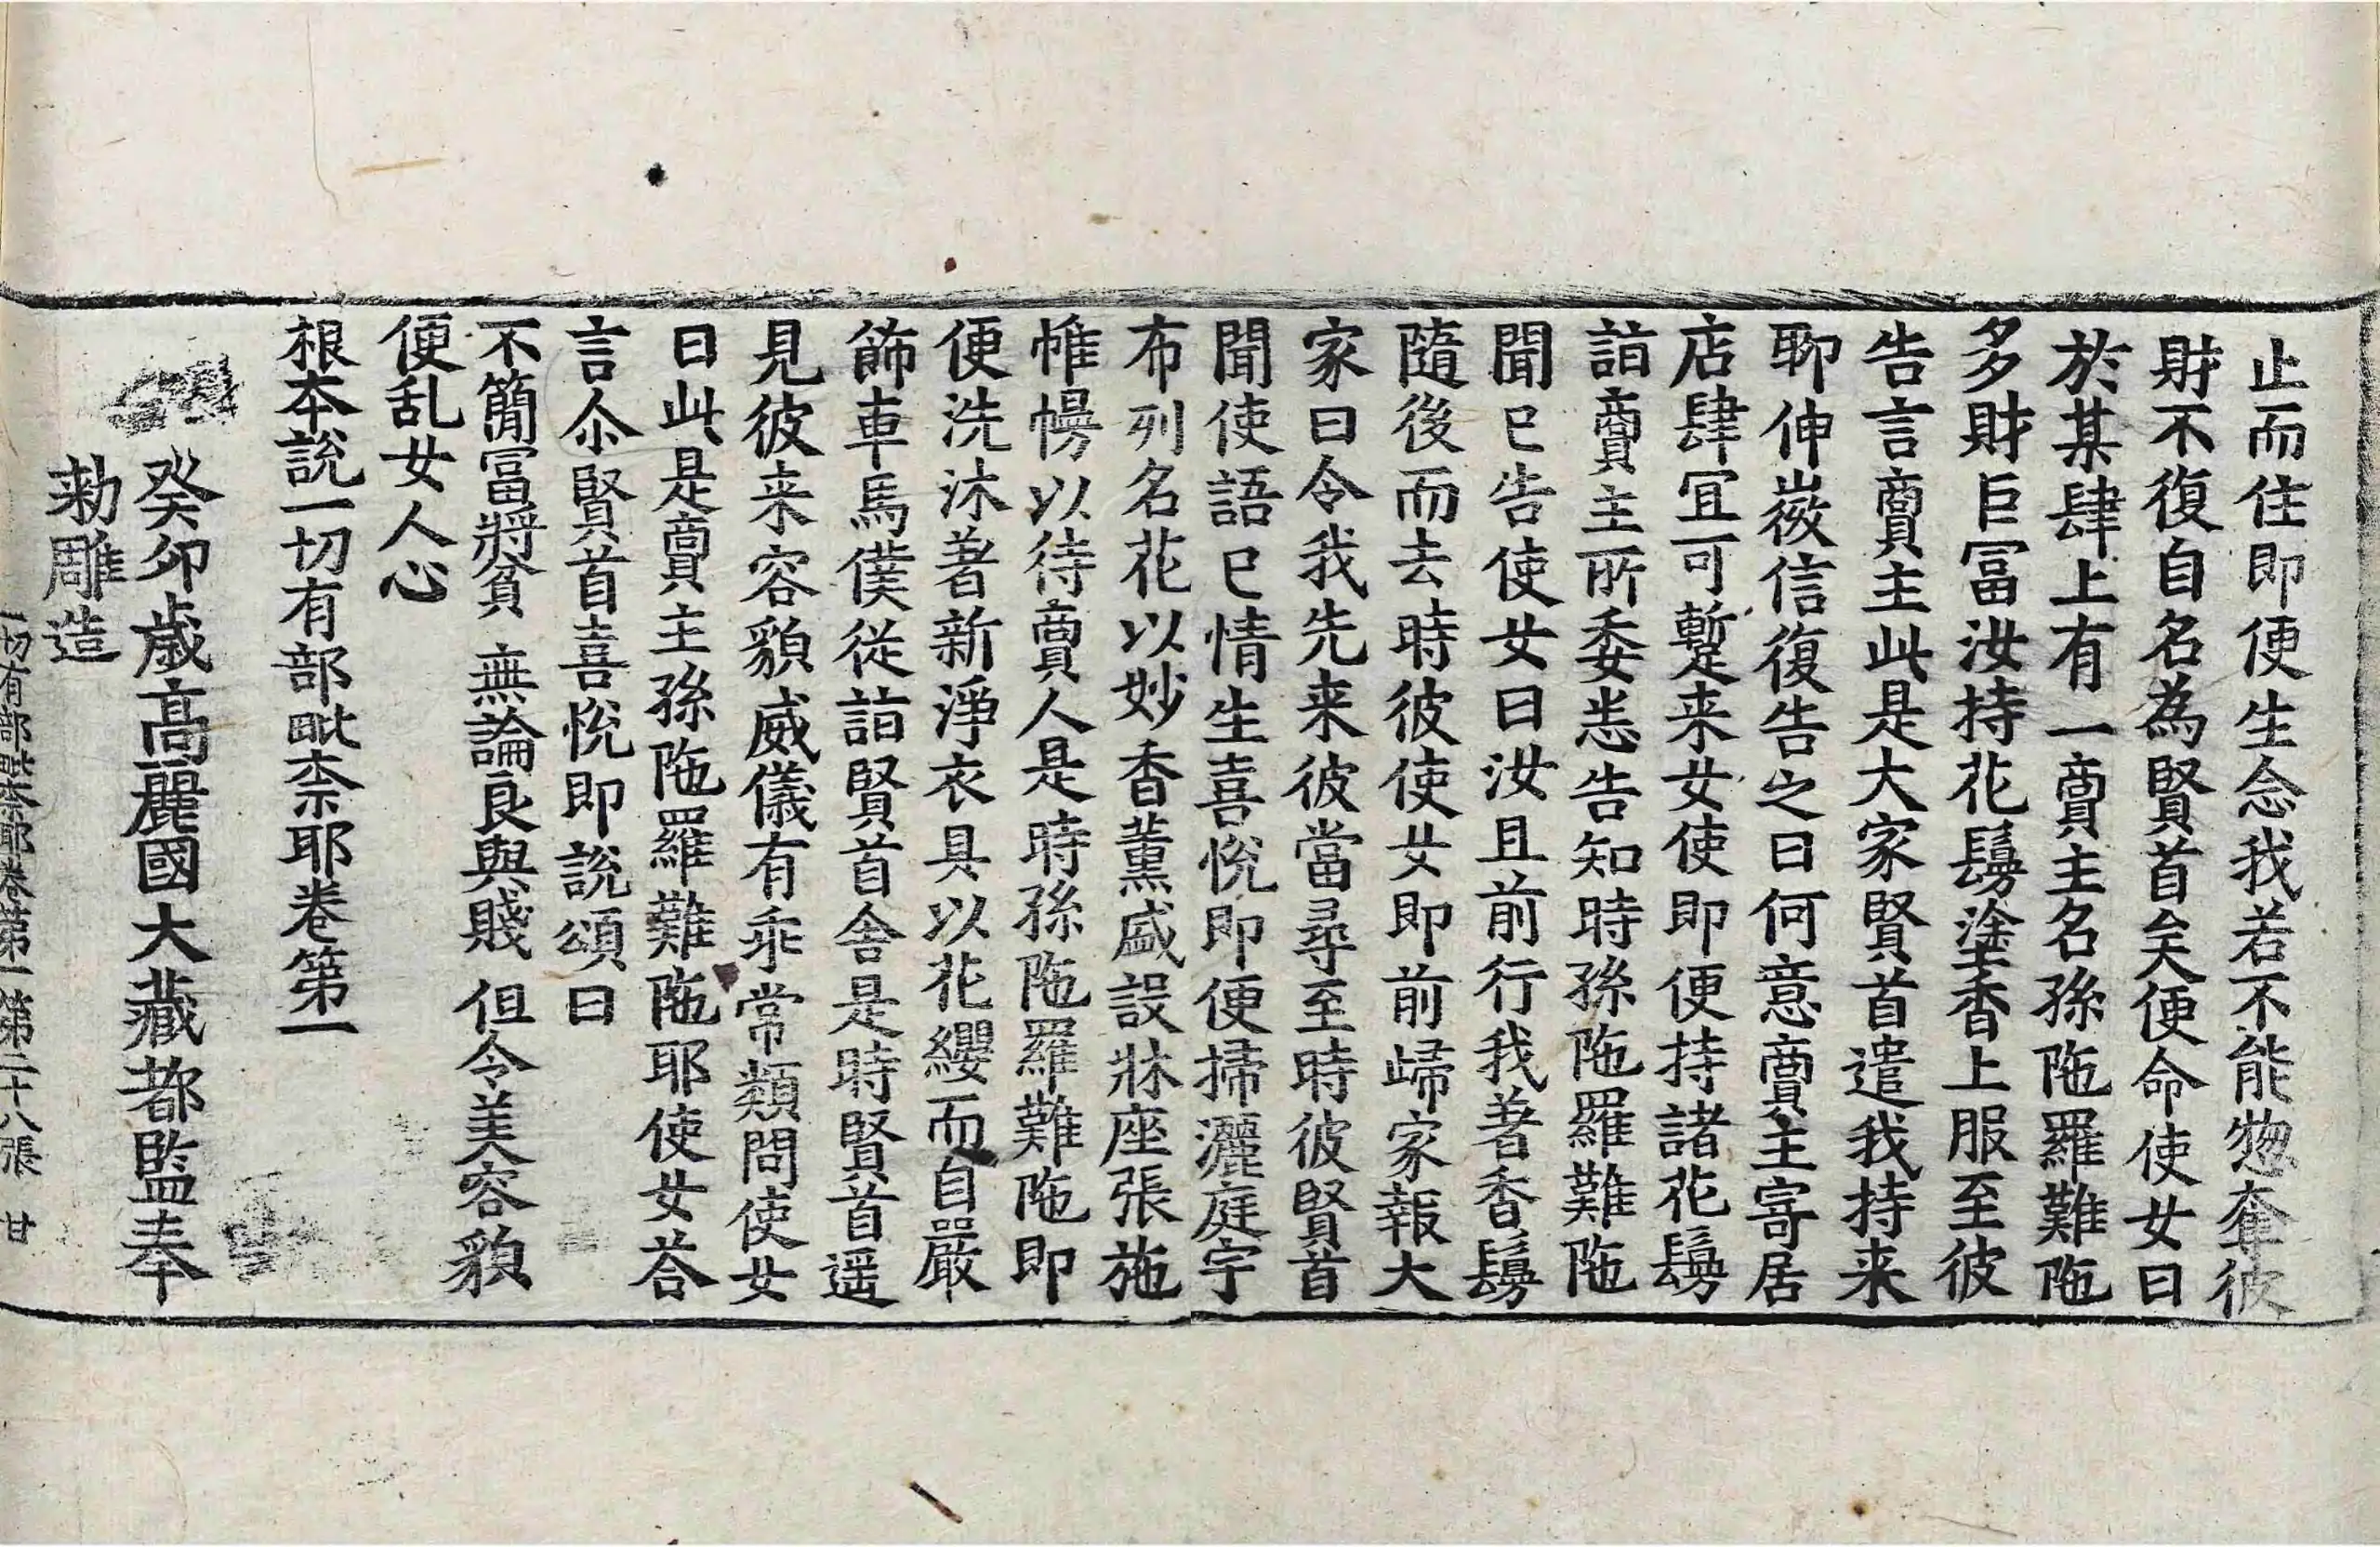 止而住即便生念我若不能惣奪彼
財不復自名為賢首矣便命使女曰
於某肆上有一賣主名孫陁羅難陁
多財巨冨汝持花鬘塗香上服至彼
告言賣主此是大家賢首遣我持来
聊伸㣲信復告之曰何意賣主寄居
店肆冝可蹔来女使即便持諸花鬘
詣賣主所委悉告知時孫陁羅難陁
聞已告使女曰汝且前行我著香鬘
隨後而去時彼使女即前歸家報大
家曰令我先来彼當尋至時彼賢首
聞使語已情生喜悅即便掃灑庭宇
布列名花以妙香薰盛設牀座張施
帷幔以待賣人是時孫陁羅難陁即
便洗沐著新淨衣具以花纓而自嚴
飾車馬僕從詣賢首舍是時賢首遥
見彼来容貌威儀有乖常類問使女
曰此是賣主孫陁羅難陁耶使女荅
言尒賢首喜悅即說頌曰
不簡冨將貧 無論良與賤 但令美容貌
便乱女人心
根本說一切有部毗柰耶卷第一
癸卯歳高麗國大藏都監奉
勑雕造
一切有部毗柰耶卷第一 第二十八張 甘